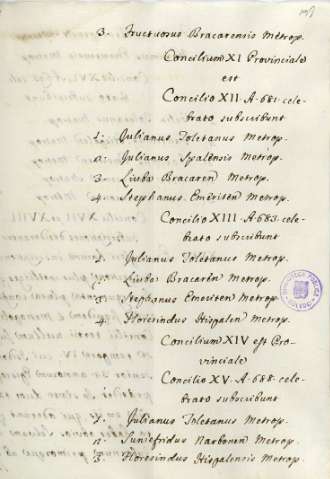 3. Fructuosus Bracarensis Metrop.
Concilium XI Provinciale
est
Concilio XII. A. 681. cele-
brato subscribunt
1. Julianus Toletanus Metrop.
2. Julianus Spalensis Metrop.
3. Liuba Bracaren Metrop.
4. Stephanus Emeriten Metrop.
Concilio XIII. A. 683. cele-
brato subscribunt
1. Julianus Toletanus Metrop.
2. Liuba Bracaren Metrop.
3. Stephanus Emeriten Metrop.
4. Floresindus Hispalen Metrop.
Concilium XIV est Pro-
vinciale
Concilio XV. A. 688. cele-
brato subscribunt
1. Julianus Toletanus Metrop.
2. Suniefridus Narbonen Metrop.
3. Floresindus Hispalensis Metrop.